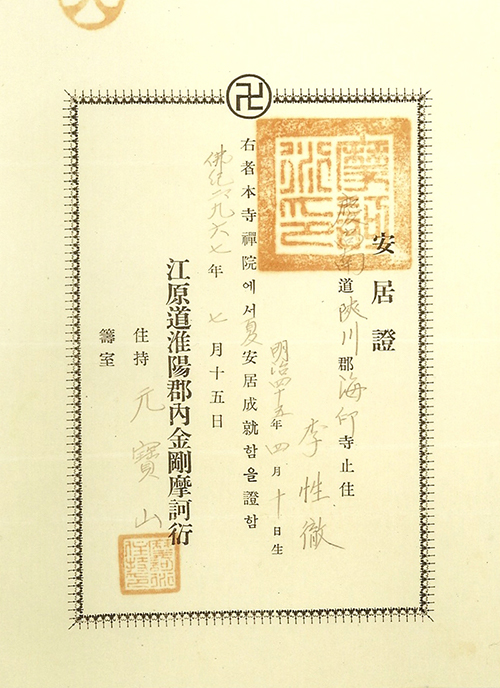 卍
安居證
慶尙南道陜川郡海印寺止住
李性徹
明治四十五年四月十日生
右者本寺禪院에서夏安居成就함을證함
佛紀二九六七年七月十五日
江原道淮陽郡內金剛摩訶衍
住持 元寶山
籌室
摩訶衍印